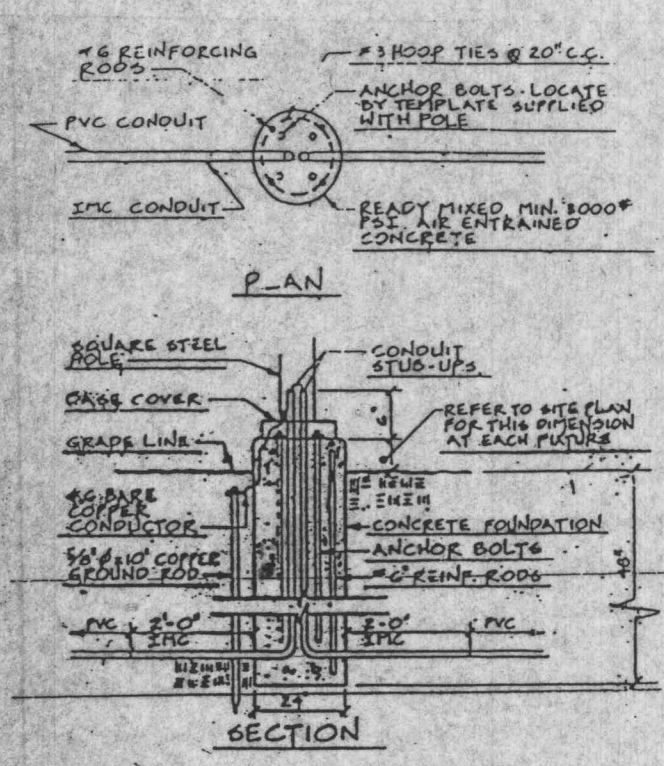 #6 REINFORCING
RODS
#3 HOOP TIES @ 20" C.C.
ANCHOR BOLTS - LOCATE
BY TEMPLATE SUPPLIED
WITH POLE
PVC CONDUIT
IMC CONDUIT
READY MIXED MIN. 3000#
PSI AIR ENTRAINED
CONCRETE
P_AN
SQUARE STEEL
POLE
CONDUIT
STUB-UPS
BASE COVER
6"
REFER TO SITE PLAN
FOR THIS DIMENSION
AT EACH FIXTURE
GRADE LINE
BARE
COPPER
CONDUCTOR
CONCRETE FOUNDATION
ANCHOR BOLTS
5/8" ø x 10' COPPER
GROUND ROD
#6 REINF. RODS
PVC
2'-0"
IMC
2'-0"
IMC
PVC
24"
SECTION